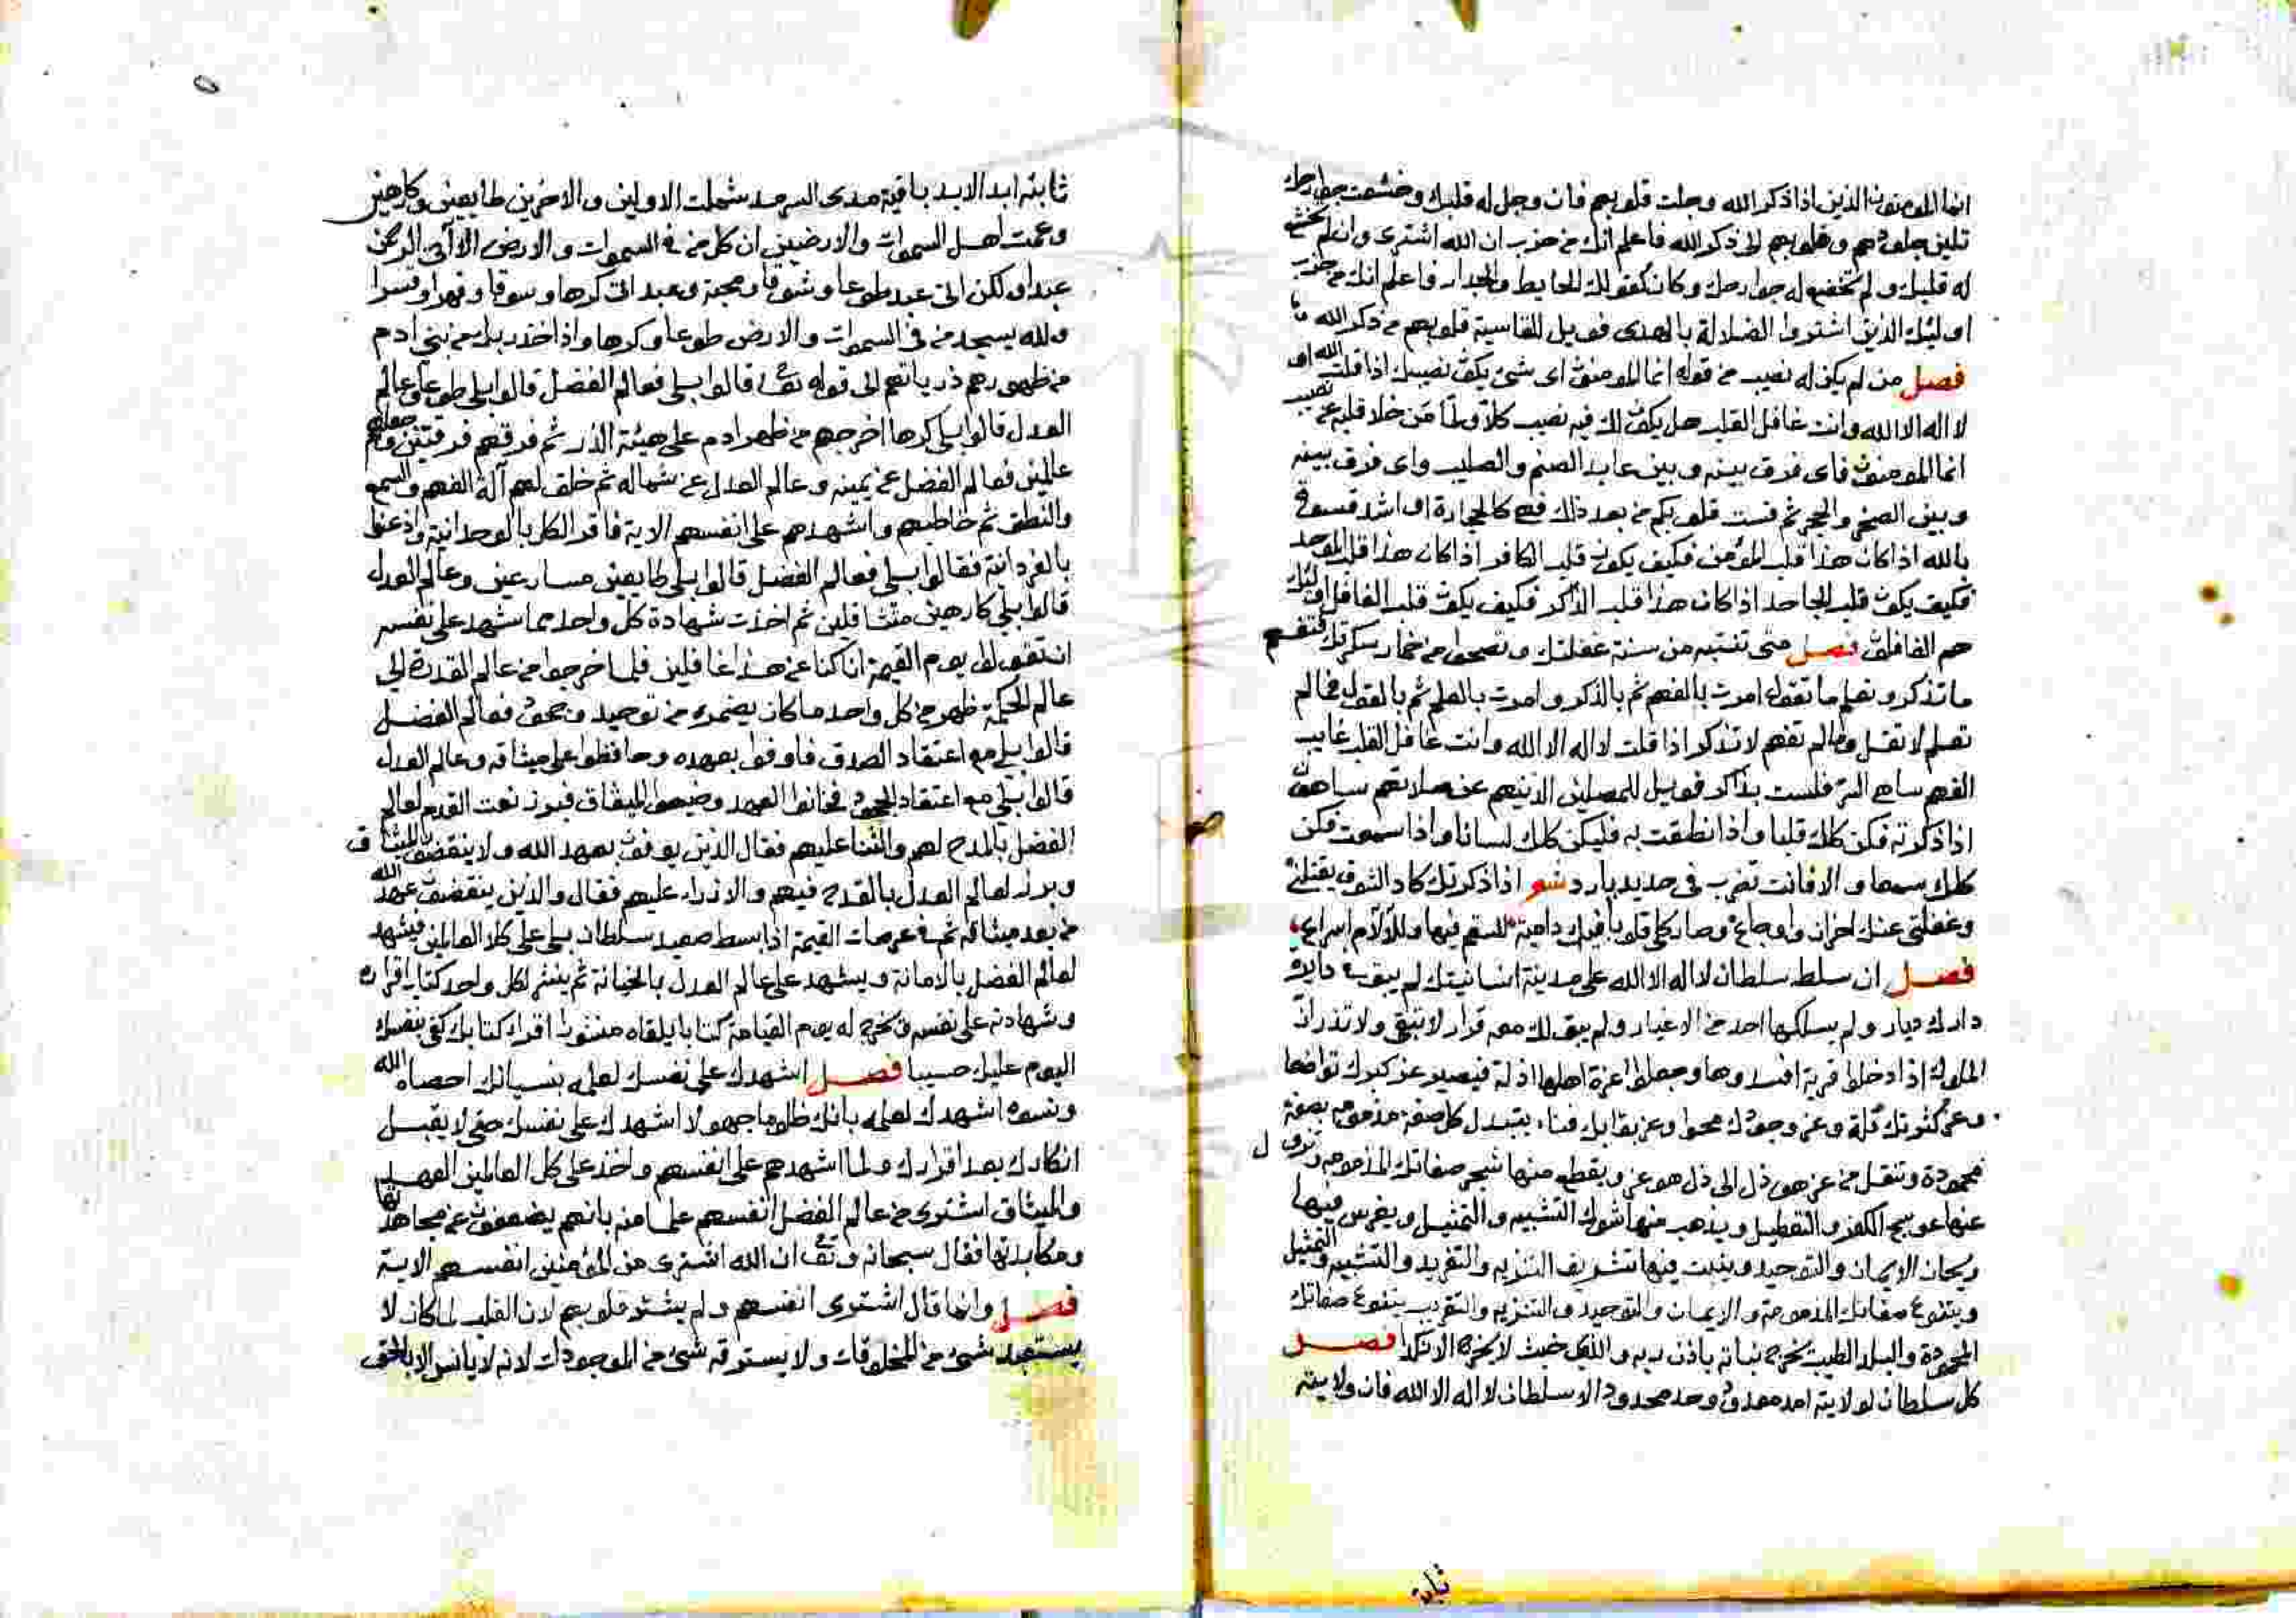 انما المومنون الذين اذا ذكر الله وجلت قلوبهم فان وجل له قلبك وخشعت جوارحك
تلين جلودهم وقلوبهم الى ذكر الله فاعلم انك من حزب ان الله اشترى وان لم يخشع
له قلبك ولم تخضع له جوارحك وكان كقولك للحايط والجدار فاعلم انك من حزب
اوليك الذين اشتروا الضلالة بالهدى فويل للقاسية قلوبهم من ذكر الله
فصل من لم يكن له نصيب من قوله انما المومنون اى شئ يكون نصيبك اذا قلت
لا اله الا الله وانت غافل القلب هل يكون لك فيه نصيب كلا ولما من خلا قلبه عن
انما المومنون فاى فرق بينه وبين عابد الصنم والصليب واى فرق بينه
وبين الصخر والحجر ثم قست قلوبكم من بعد ذلك فهى كالحجارة او اشد قسوة
بالله اذا كان هذا قلب المؤمن فكيف يكون قلب الكافر اذا كان هذا قلب الموحد
فكيف يكون قلب الجاحد اذا كان هذا قلب الذاكر فكيف يكون قلب الغافل اوليك
هم الغافلون فصل متى تنتبه من سنة غفلتك وتصحوا من خمار سكرتك فتفهم
ما تذكر وتعلم ما تقول امرت بالفهم ثم بالذكر وامرت بالعلم ثم بالقول فما لم
تعلم لا تقل وما لم تفهم لا تذكر اذا قلت لا اله الا الله وانت غافل القلب غايب
الفهم ساهى السر فلست بذاكر فويل للمصلين الذين هم عن صلاتهم ساهون
اذا ذكرته فكن كلك قلبا واذا نطقت به فليكن كلك لسانا واذا سمعت فكن
كلك سمعا والا فانت تضرب فى حديد بارد شعر اذا ذكرتك كاد الشوق يقتلنى
وغفلتى عنك احزان واوجاع وصار كلى قلوبا فيك دامية للسقم فيها وللآلام اسراع
فصل ان سلط سلطان لا اله الا الله على مدينة انسانيتك لم يبق فى دايرة
دارك ديار ولم يسلكها احد من الاغيار ولم يبق لك معه قرار لا تبقى ولا تذر ان
الملوك اذا دخلوا قرية افسدوها وجعلوا اعزة اهلها اذلة فيصير عز كبرك تواضعا
وعز كثرتك قلة وعز وجودك محوا وعز بقايك فناء يتبدل كل صفة مذمومه بصفة
محمودة وتنقل من عز هو ذل الى ذل هو عز ويقطع منها شجر صفاتك المذمومه وتزول
عنها عوسج الكفر والتعطيل ويذهب منها شوك التشبيه والتمثيل ويغرس فيها
ريحان الايمان والتوحيد وينبت فيها تشريف التنزيه والتفريد والتشبيه والتمثيل
ويتفرع صفاتك المذمومة والايمان والتوحيد والتنزيه والتقرب يتفرع صفاتك
المحمودة والبلد الطيب يخرج نباته باذن ربه والذى خبث لا يخرج الا نكدا فصل
كل سلطان لولايته امد معدود وحد محدود الا سلطان لا اله الا الله فان ولايته
ثابتة
ثابتة ابد الابد باقية مدى السرمد شملت الاولين والاخرين طايعين وكارهين
وعمت اهل السموات والارضين ان كل من فى السموات والارض الا آتى الرحمن
عبدا ولكن اتى عبد طوعا وشوقا ومحبة وعبد اتى كرها وسوقا وقهرا وقسرا
ولله يسجد من فى السموات والارض طوعا وكرها واذ اخذ ربك من بنى ادم
من ظهورهم ذرياتهم الى قوله تعالى قالوا بلى فعالم الفضل قالوا بلى طوعا وعالم
العدل قالوا بلى كرها اخرجهم من ظهر ادم على هيئة الذر ثم فرقهم فرقتين وجعلهم
عالمين فعالم الفضل عن يمينه وعالم العدل عن شماله ثم خلق لهم آلة الفهم والسمع
والنطق ثم خاطبهم واشهدهم على انفسهم الاية فاقر الكل بالوحدانية واذعنوا
بالفردانية فقالوا بلى فعالم الفضل قالوا بلى طايعين مسارعين وعالم العدل
قالوا بلى كارهين متثاقلين ثم اخذت شهادة كل واحد مما اشهد على نفسه
ان تقولوا يوم القيمة انا كنا عن هذا غافلين فلما خرجوا من عالم القدرة الى
عالم الحكمة ظهر من كل واحد ما كان يضمره من توحيد وجحود فعالم الفضل
قالوا بلى مع اعتقاد الصدق فاوفوا بعهده وحافظوا على ميثاقه وعالم العدل
قالوا بلى مع اعتقاد الجحود فخانوا العهد وضيعوا الميثاق فبرز نعت القدم لعالم
الفضل بالمدح لهم والثنا عليهم فقال الذين يوفون بعهد الله ولا ينقضون الميثاق
وبرز لعالم العدل بالقدح فيهم والازراء عليهم فقال والذين ينقضون عهد الله
من بعد ميثاقه ثم فى عرصات القيمة اذا بسط صعيد سلطان بلى على كلا العالمين فيشهد
لعالم الفضل بالامانة ويشهد على عالم العدل بالخيانة ثم ينشر لكل واحد كتاب اقراره
وشهادته على نفسه ونخرج له يوم القيامة كتابا يلقاه منشورا اقرا كتابك كفى بنفسك
اليوم عليك حسيبا فصل اشهدك على نفسك لعلمه بنسيانك احصاه الله
ونسوه اشهدك لعلمه بانك ظلوما جهولا اشهدك على نفسك حتى لا يقبل
انكارك بعد اقرارك ولما اشهدهم على انفسهم واخذ على كل العالمين العهد
والميثاق اشترى من عالم الفضل انفسهم علما منه بانهم يضعفون عن مجاهدتها
ومكابدتها فقال سبحانه وتعالى ان الله اشترى من المؤمنين انفسهم الاية
فصل وانما قال اشترى انفسهم ولم يشتر قلوبهم لان القلب لما كان لا
يستعبد شئ من المخلوقات ولا يسترقه شئ من الموجودات لانه لا يانس الا بالحق